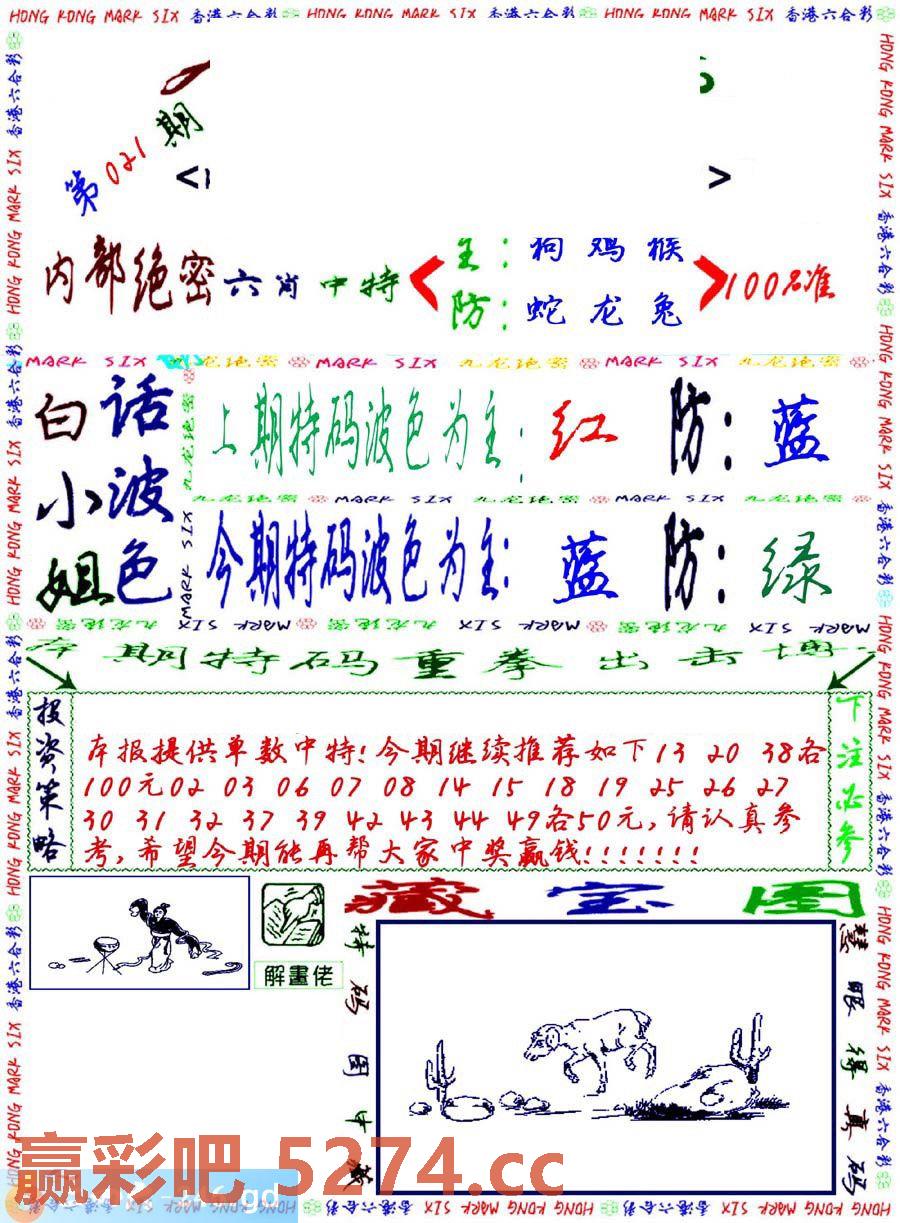 HONG KONG MARK SIX 香港六合彩 HONG KONG MARK SIX 香港六合彩 HONG KONG MARK SIX 香港六合彩
第021期
< >
内部绝密六肖中特
主：狗鸡猴
防：蛇龙兔
100%准
MARK SIX 九龙绝密 MARK SIX 九龙绝密 MARK SIX 九龙绝密
白小姐
话波色
上期特码波色为主：红 防：蓝
九龙绝密 MARK SIX 九龙绝密 MARK SIX 九龙绝密
今期特码波色为主：蓝 防：绿
本期特码重拳出击博
投资策略
本报提供单数中特!今期继续推荐如下13 20 38各
100元02 03 06 07 08 14 15 18 19 25 26 27
30 31 32 37 39 42 43 44 49各50元,请认真参
考,希望今期能再帮大家中奖赢钱!!!!!!!
下注必参
藏宝图
解畫佬
特码图中藏
慧眼得真码
赢彩吧 5274.cc